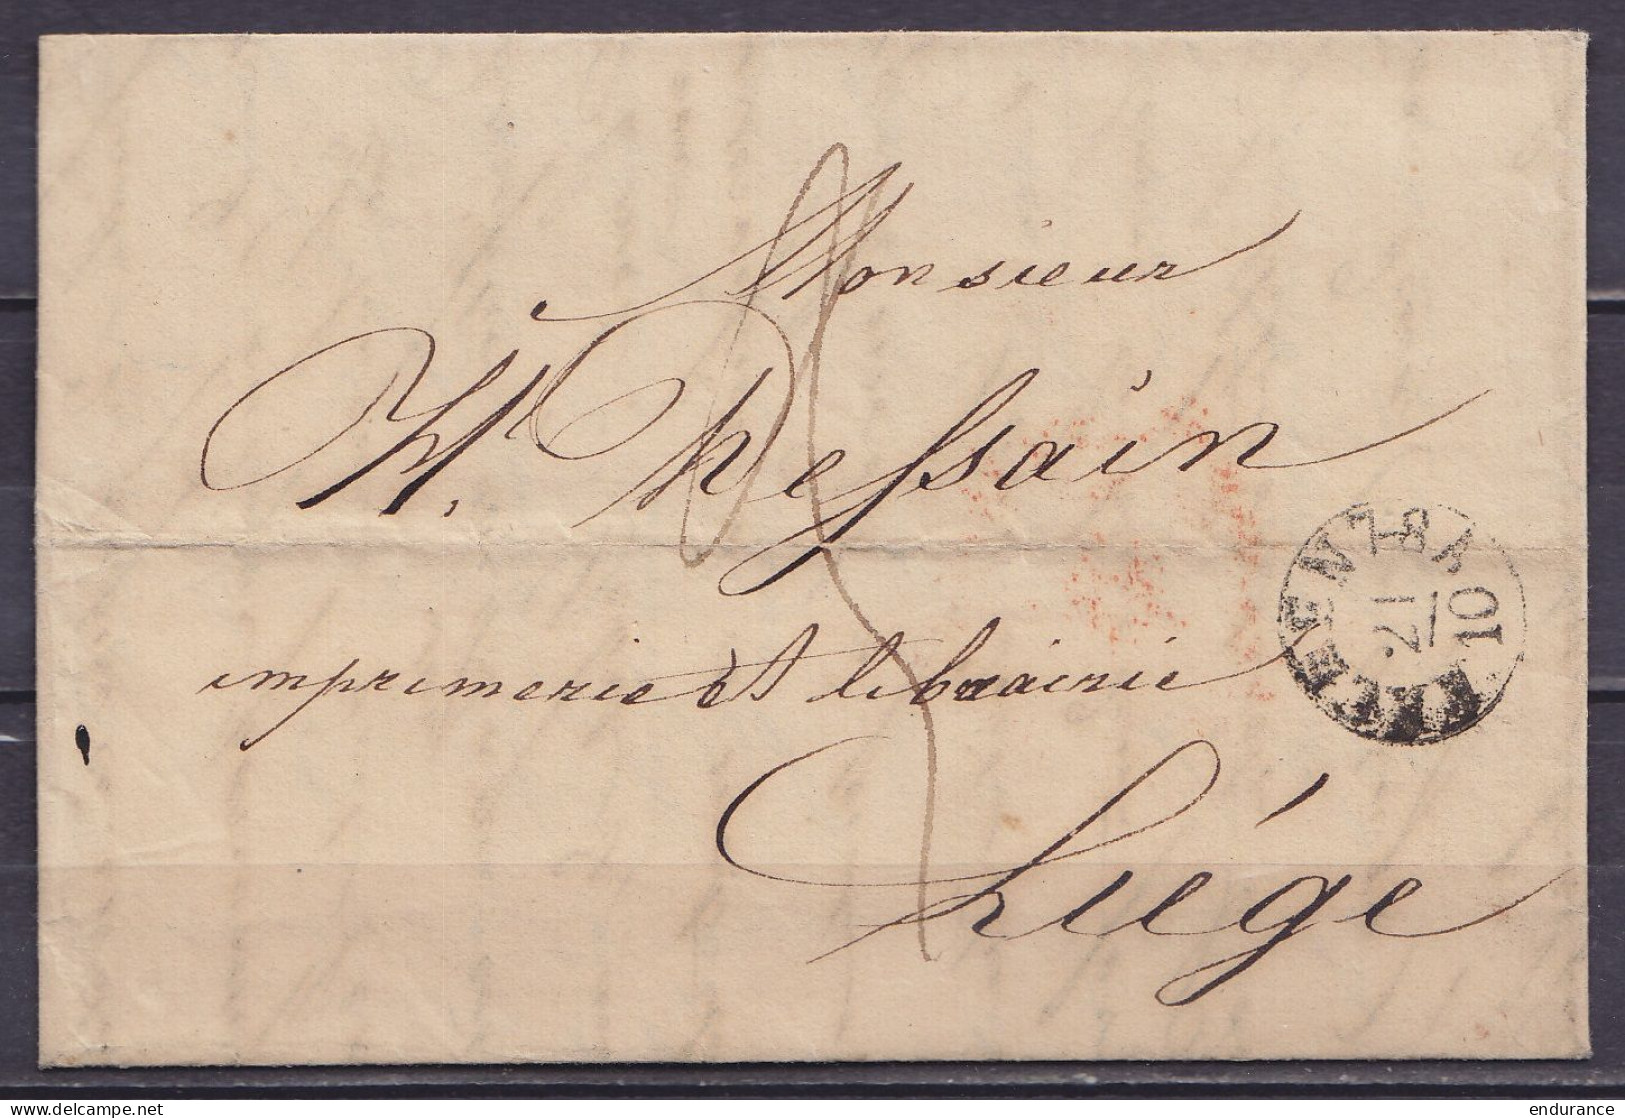 Monsieur
H. Dessain
imprimerie et librairie
Liége
21
10
delcampe.net
endurance